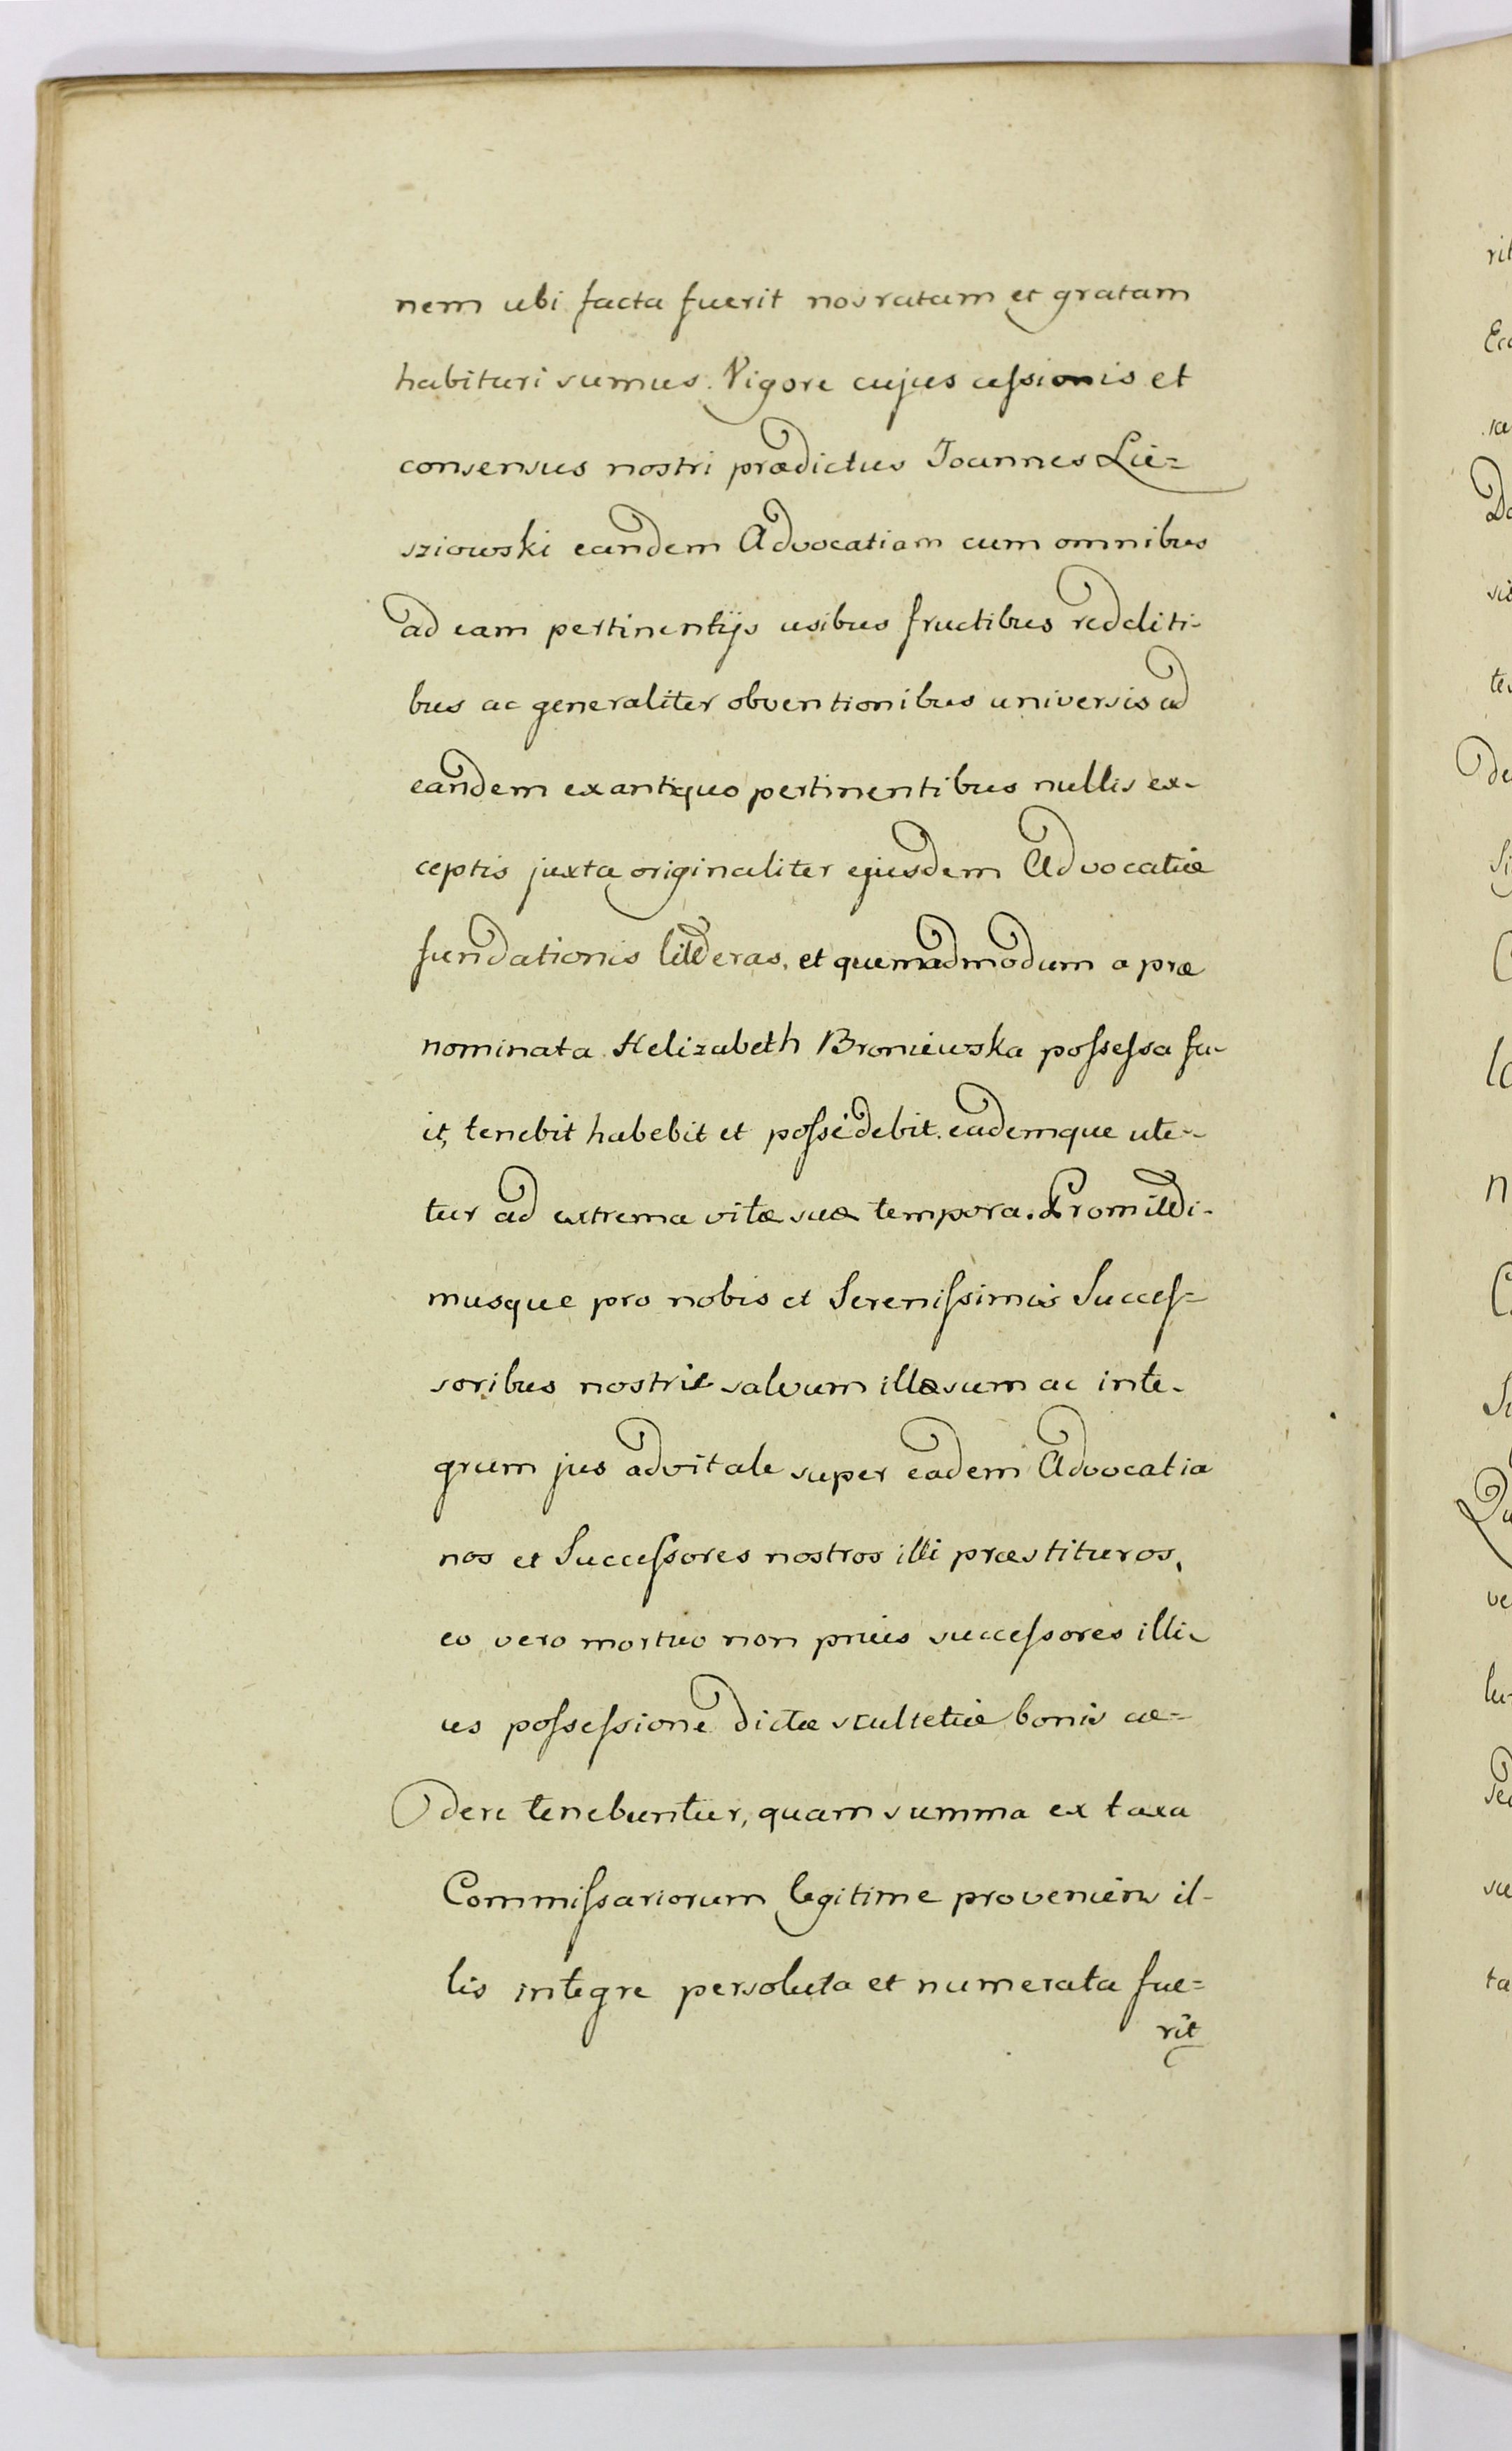 nem ubi facta fuerit nos ratam et gratam
habituri sumus. Vigore cujus cessionis et
consensus nostri prædictus Joannes Lie=
sziowski eandem Advocatiam cum omnibus
ad eam pertinentijs usibus fructibus redditi-
bus ac generaliter obventionibus universis ad
eandem ex antiquo pertinentibus nullis ex-
ceptis juxta originaliter ejusdem Advocatiæ
fundationis litteras, et quemadmodum a præ
nominata Helizabeth Broniewska possessa fu-
it, tenebit habebit et possidebit. eademque ute-
tur ad extrema vitæ suæ tempora. Promitti-
musque pro nobis et Serenissimis Succes=
soribus nostris salvum illæsum ac inte-
grum jus advitale super eadem Advocatia
nos et Successores nostros illi præstituros,
eo vero mortuo non prius successores illi-
us possessione dictæ scultetiæ bonis ce=
dere tenebuntur, quam summa ex taxa
Commissariorum legitime proveniens il-
lis integre persoluta et numerata fue=
rit